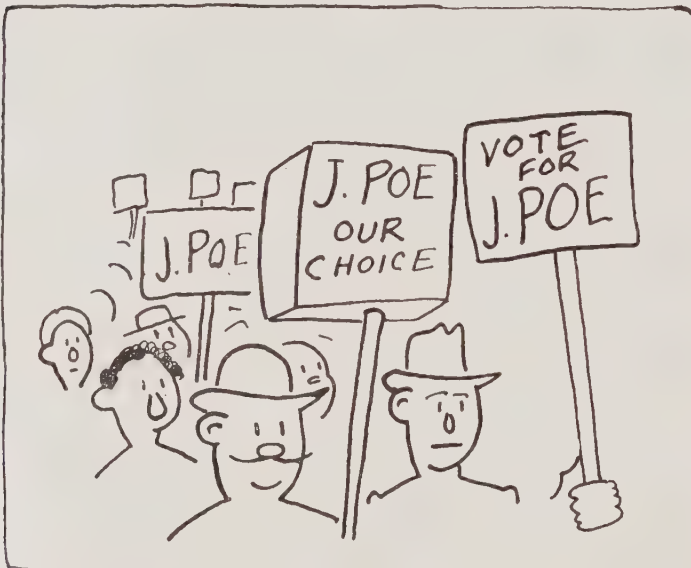 J. POE
J. POE
OUR
CHOICE
VOTE
FOR
J. POE